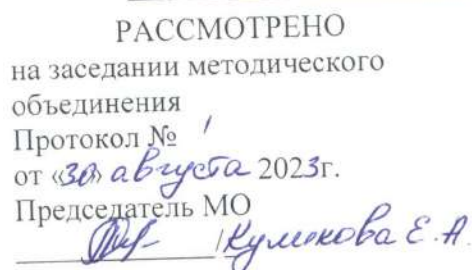 РАССМОТРЕНО
на заседании методического
объединения
Протокол № 1
от «30» августа 2023г.
Председатель МО
/Куликова Е.А.